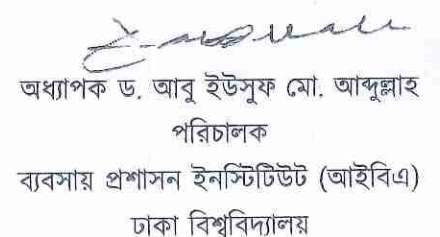 অধ্যাপক ড. আবু ইউসুফ মো. আব্দুল্লাহ
পরিচালক
ব্যবসায় প্রশাসন ইনস্টিটিউট (আইবিএ)
ঢাকা বিশ্ববিদ্যালয়